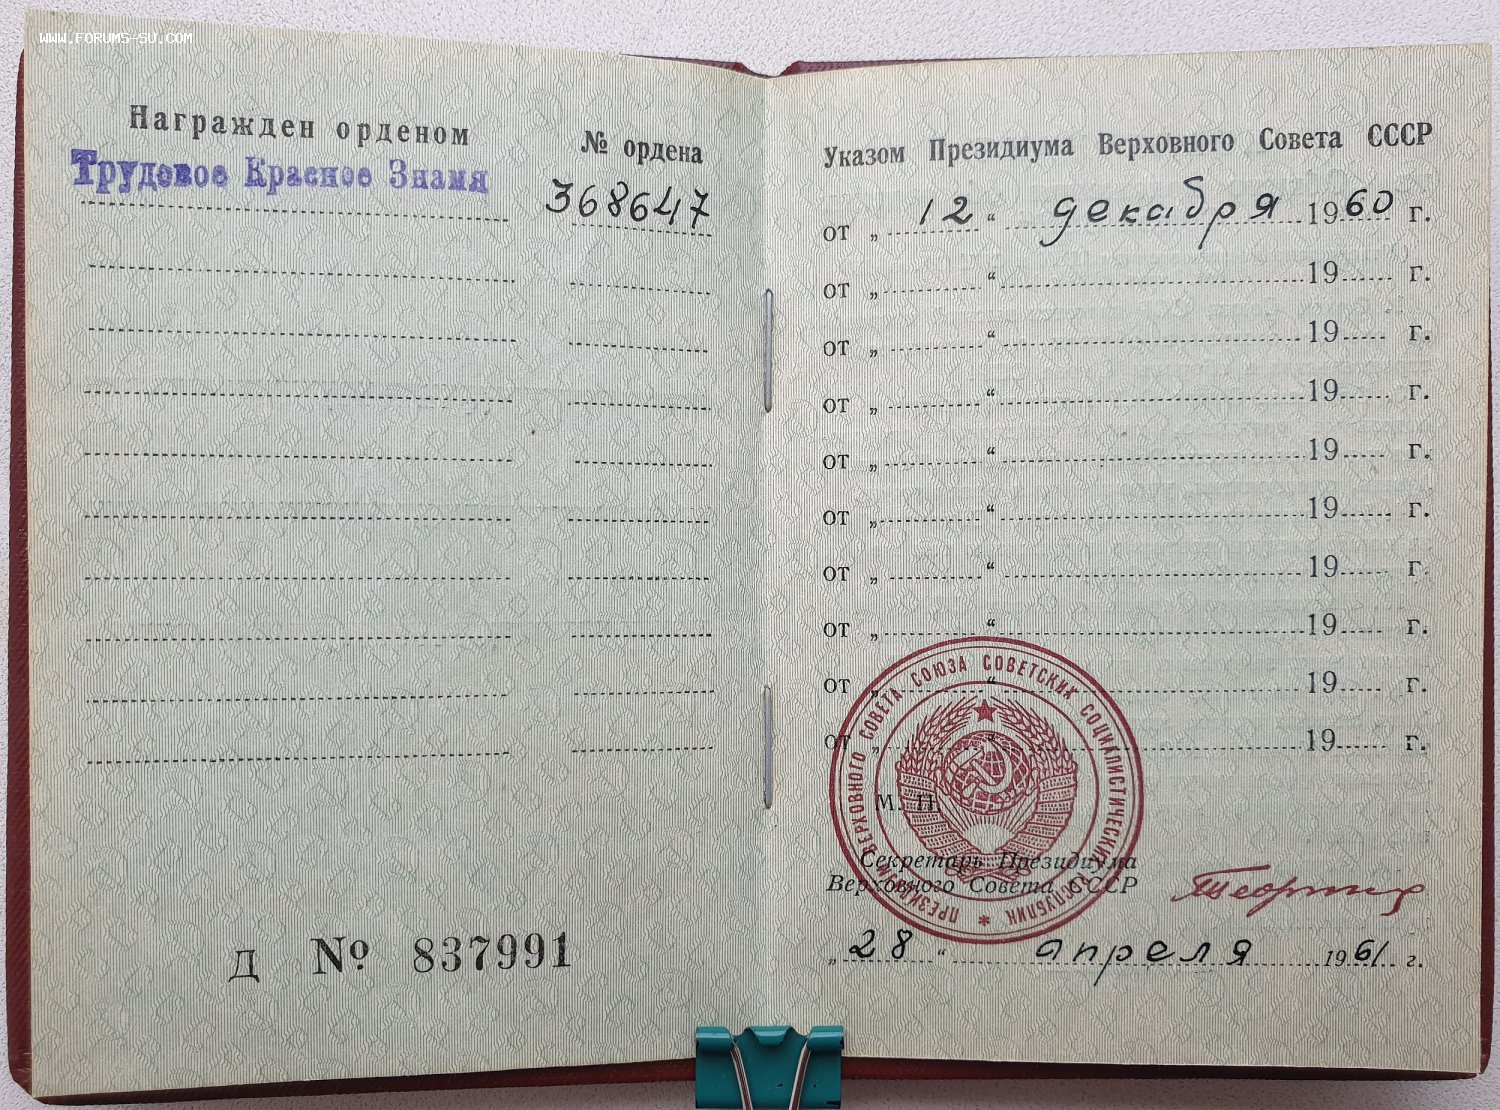 www.forums-su.com
Награжден орденом
№ ордена
Трудовое Красное Знамя
368647
Д № 837991
Указом Президиума Верховного Совета СССР
от „ 12 “ декабря 1960 г.
от „ “ 19 г.
от „ “ 19 г.
от „ “ 19 г.
от „ “ 19 г.
от „ “ 19 г.
от „ “ 19 г.
от „ “ 19 г.
от „ “ 19 г.
от „ “ 19 г.
ПРЕЗИДИУМ ВЕРХОВНОГО СОВЕТА СОЮЗА СОВЕТСКИХ СОЦИАЛИСТИЧЕСКИХ РЕСПУБЛИК *
М. П.
Секретарь Президиума
Верховного Совета СССР
„ 28 “ апреля 1961 г.